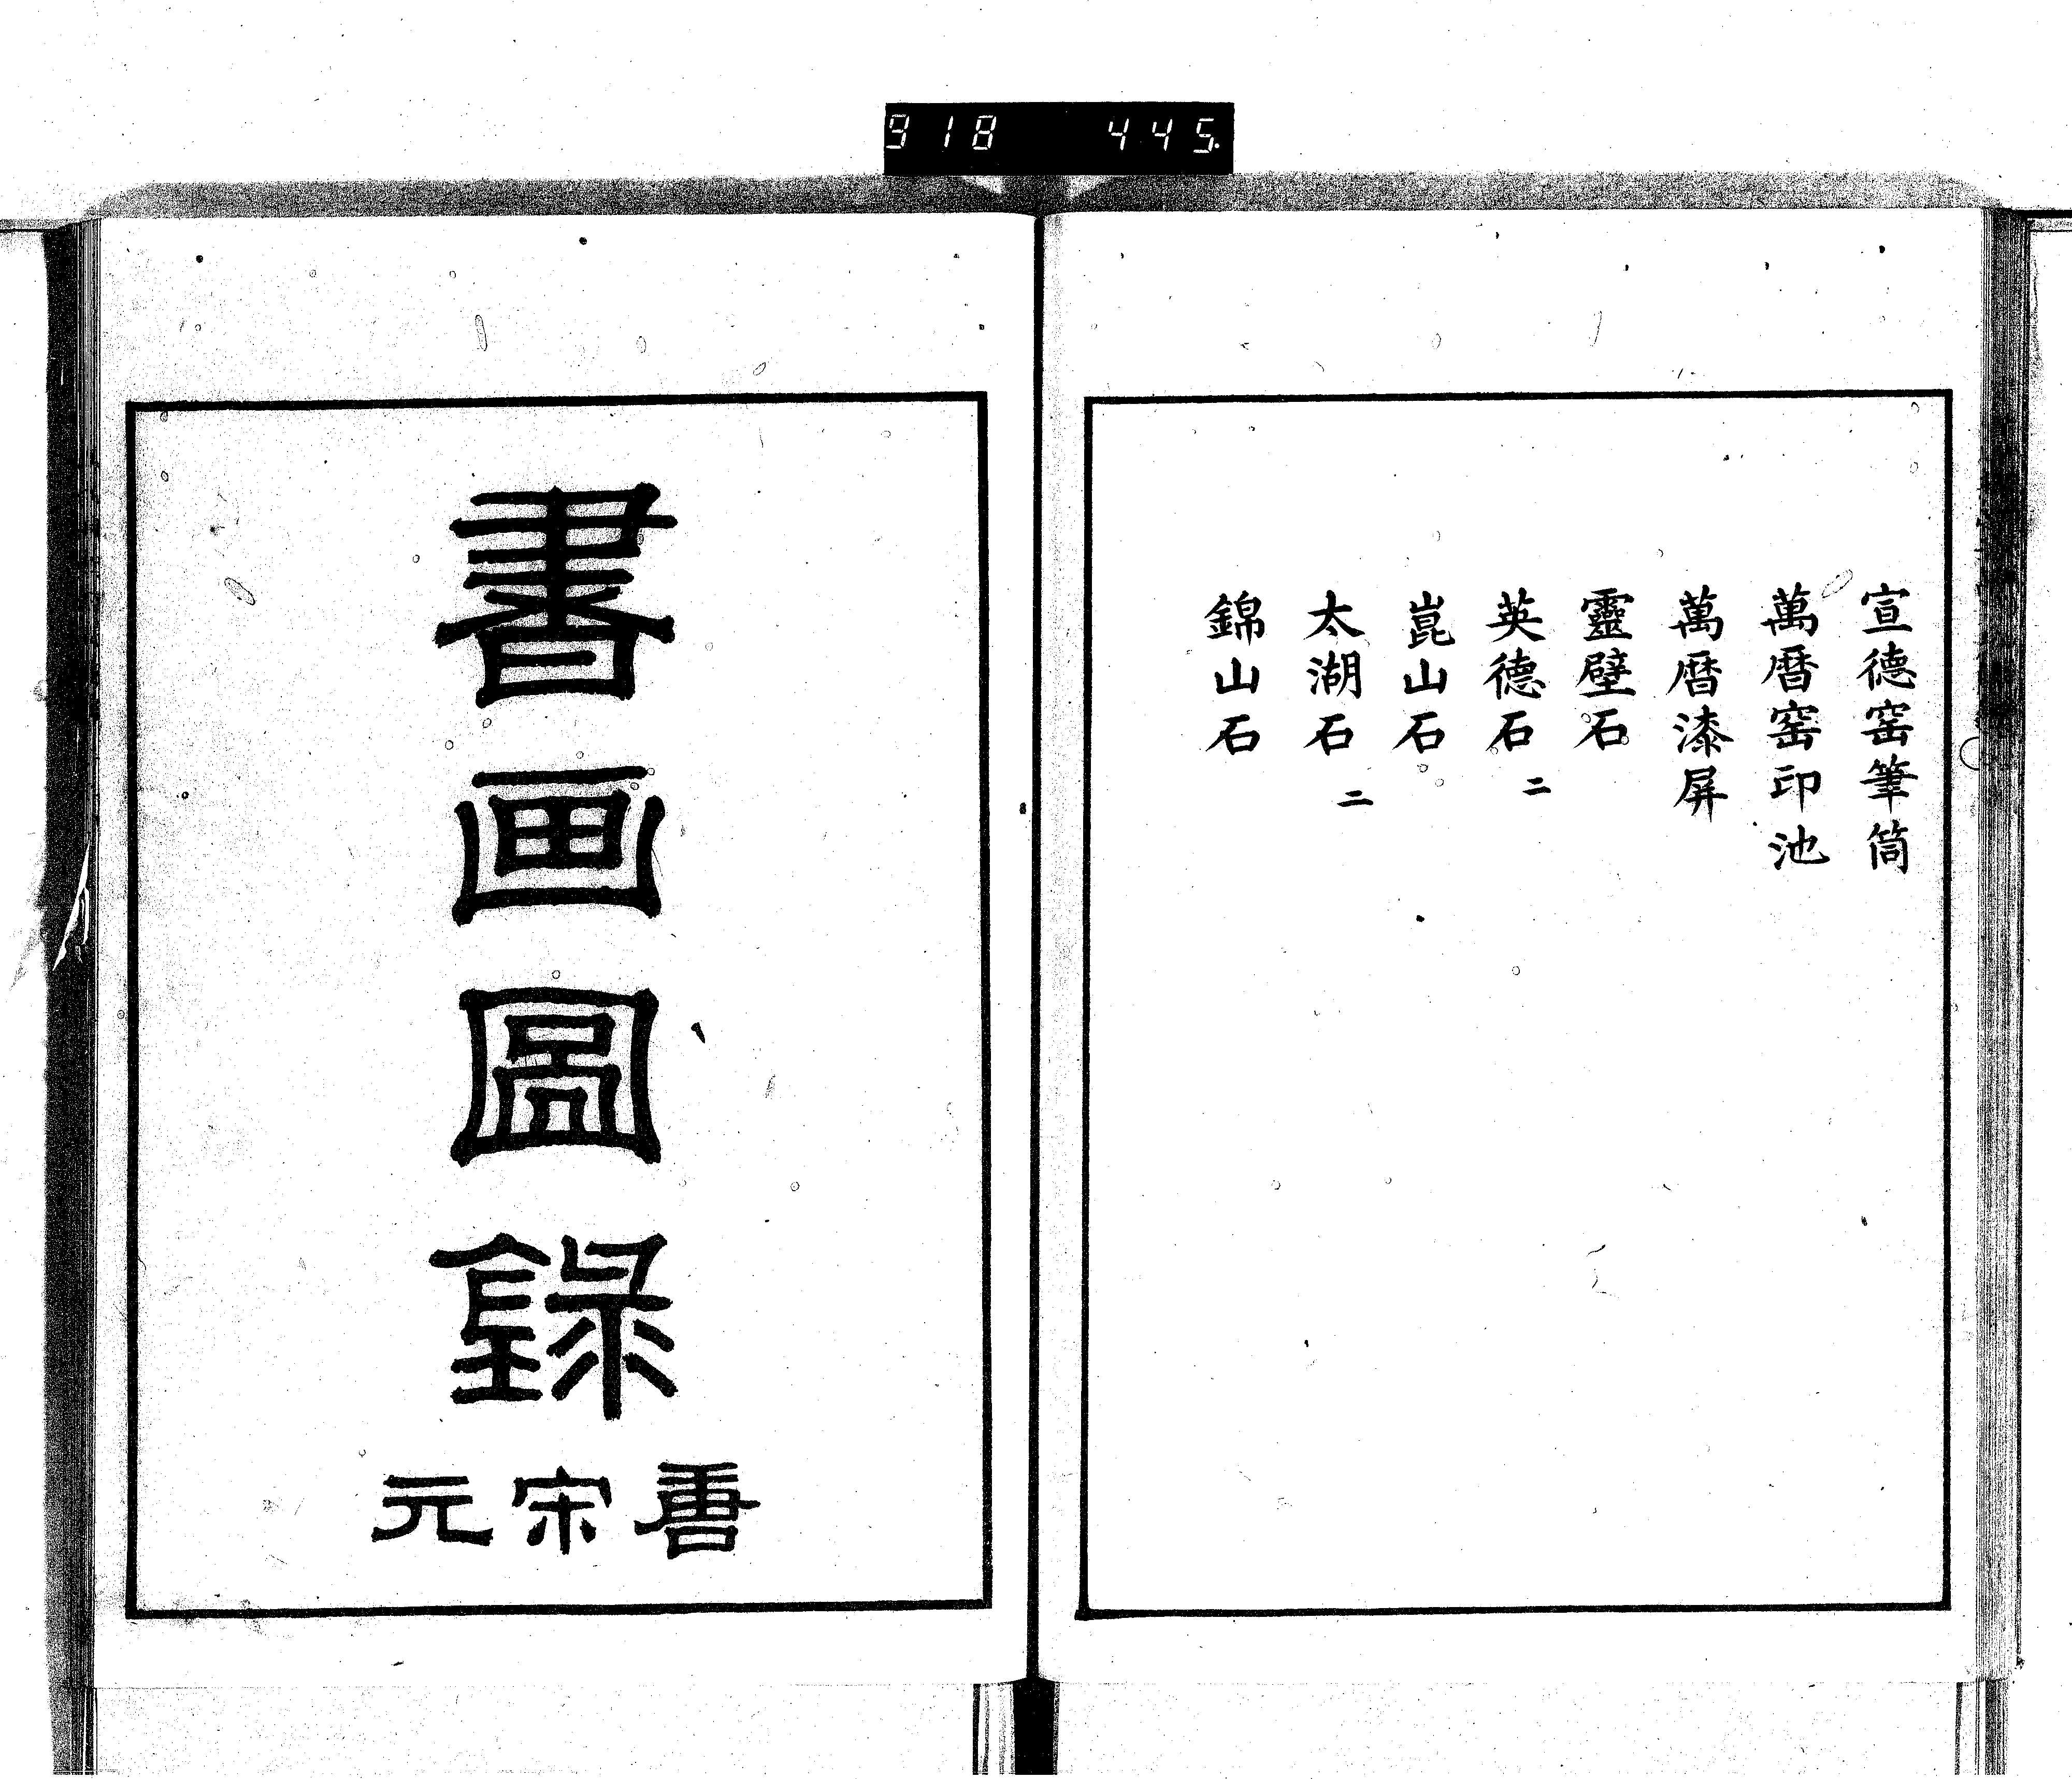 918 445.
宣德窑筆筒
萬曆窑印池
萬曆漆屏
靈壁石
英德石 二
崑山石
太湖石 二
錦山石
書画圖錄
唐宋元